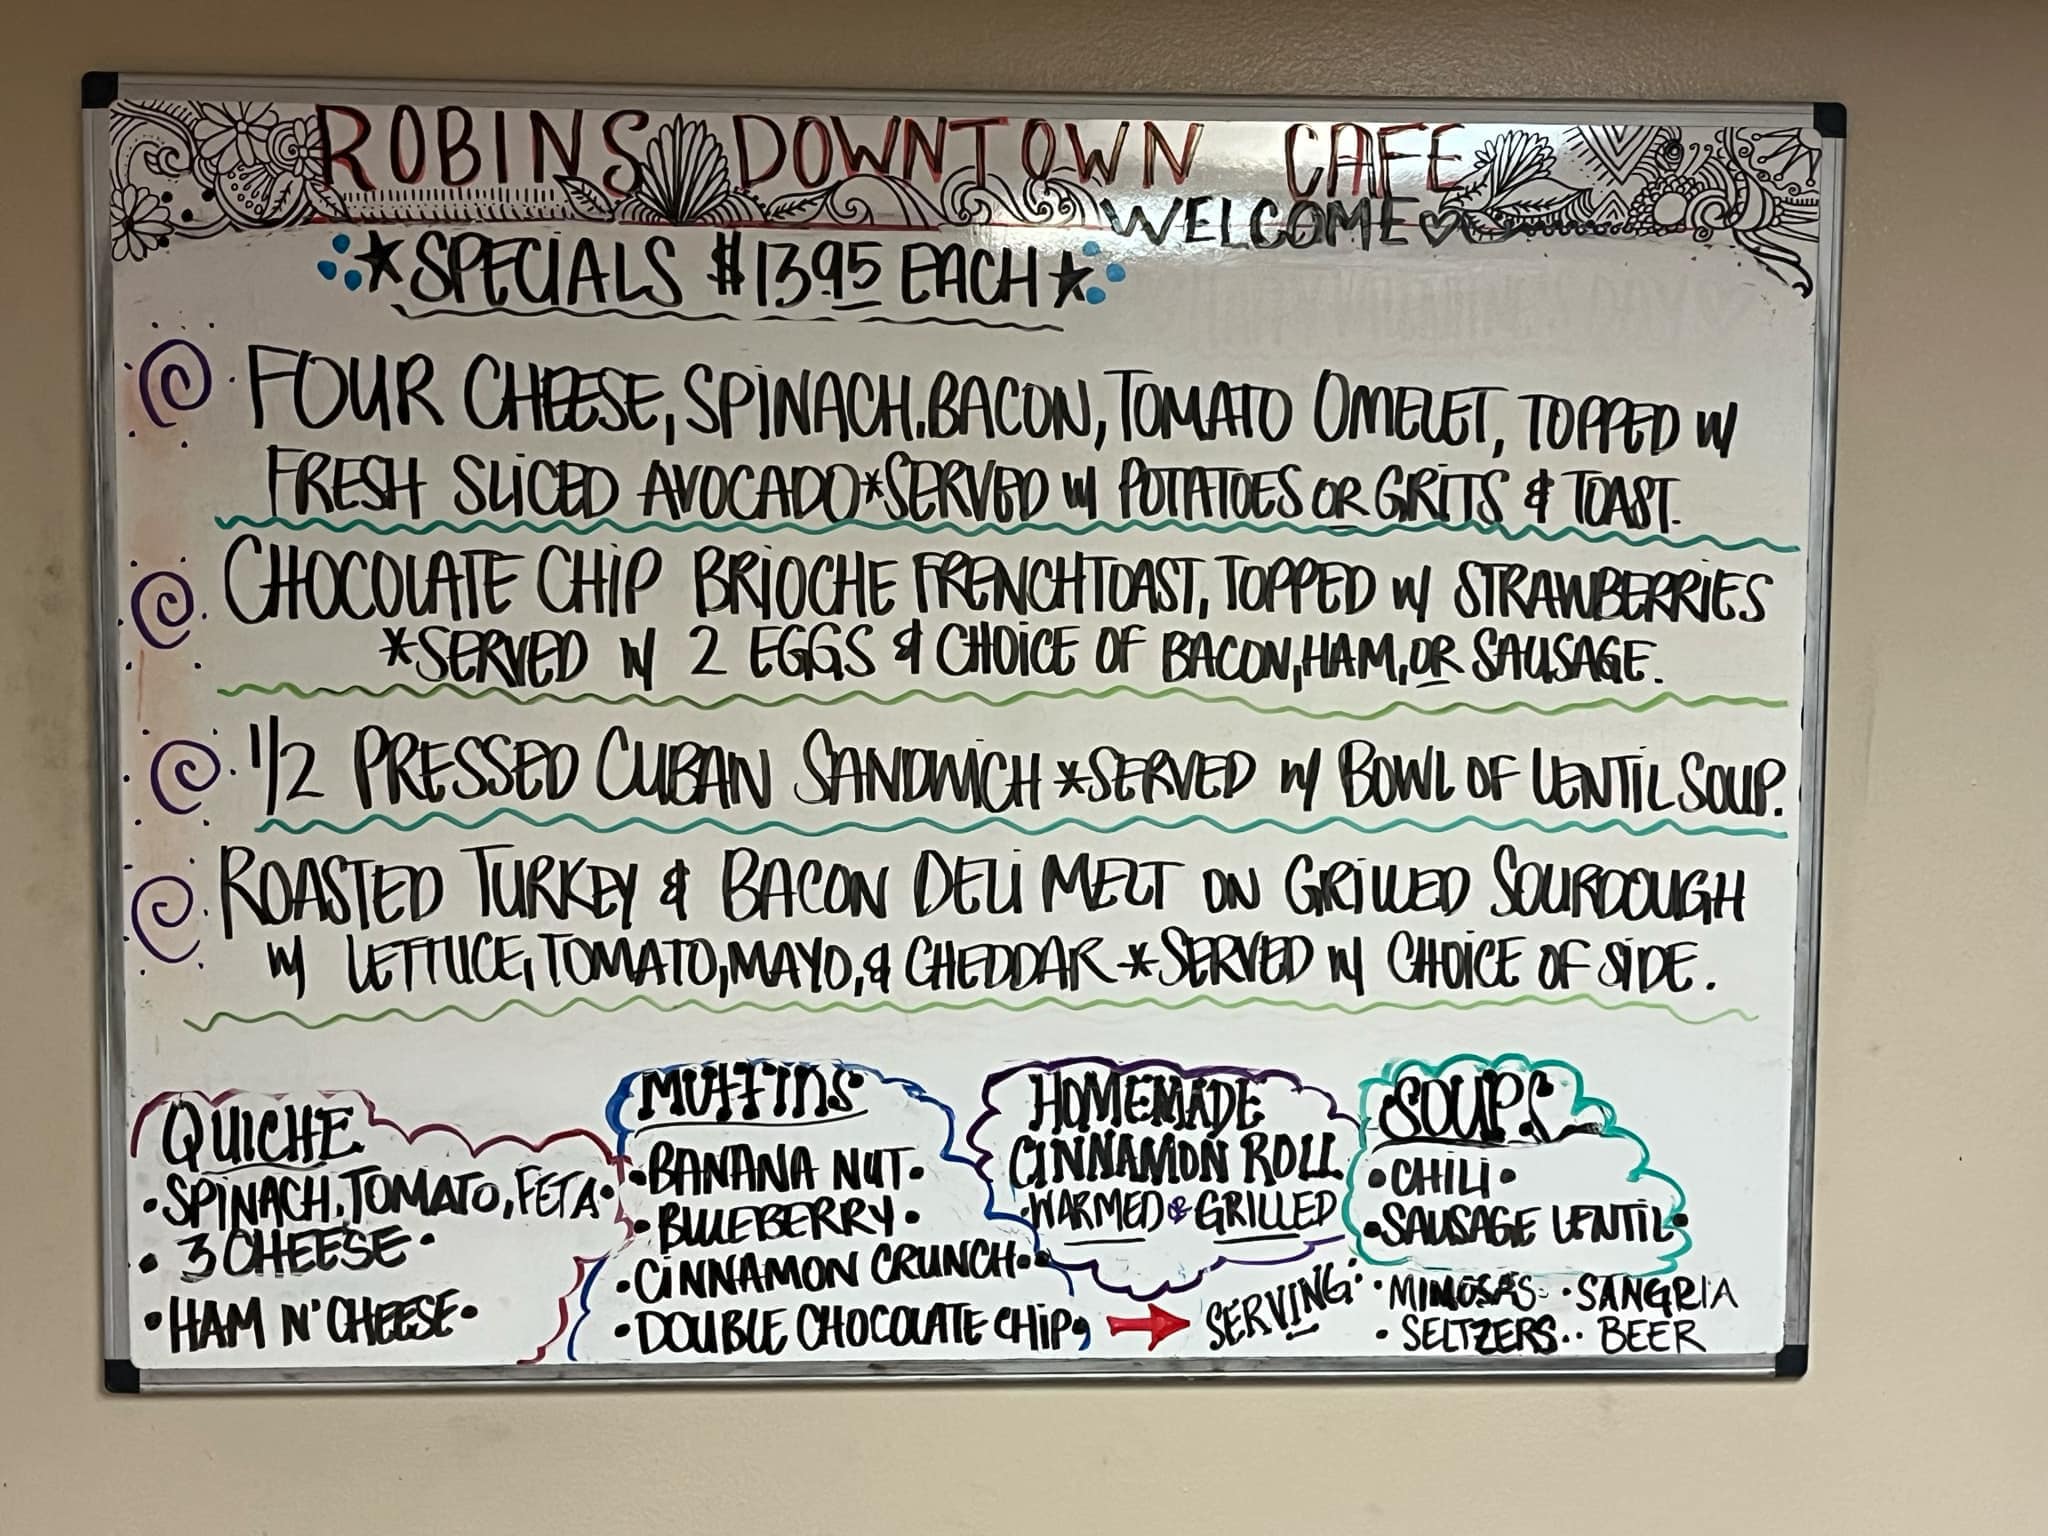 ROBINS DOWNTOWN CAFE
WELCOME
SPECIALS $13.95 EACH
FOUR CHEESE, SPINACH, BACON, TOMATO OMELET, TOPPED W/
FRESH SLICED AVOCADO *SERVED W/ POTATOES OR GRITS & TOAST.
CHOCOLATE CHIP BRIOCHE FRENCH TOAST, TOPPED W/ STRAWBERRIES
*SERVED W/ 2 EGGS & CHOICE OF BACON, HAM, OR SAUSAGE.
1/2 PRESSED CUBAN SANDWICH *SERVED W/ BOWL OF LENTIL SOUP.
ROASTED TURKEY & BACON DELI MELT ON GRILLED SOURDOUGH
W/ LETTUCE, TOMATO, MAYO, & CHEDDAR *SERVED W/ CHOICE OF SIDE.
QUICHE
• SPINACH, TOMATO, FETA •
• 3 CHEESE •
• HAM N' CHEESE •
MUFFINS
• BANANA NUT •
• BLUEBERRY •
• CINNAMON CRUNCH •
• DOUBLE CHOCOLATE CHIP •
HOMEMADE
CINNAMON ROLL
• WARMED & GRILLED
SOUPS
• CHILI •
• SAUSAGE LENTIL •
SERVING:
• MIMOSAS • • SANGRIA
• SELTZERS • • BEER